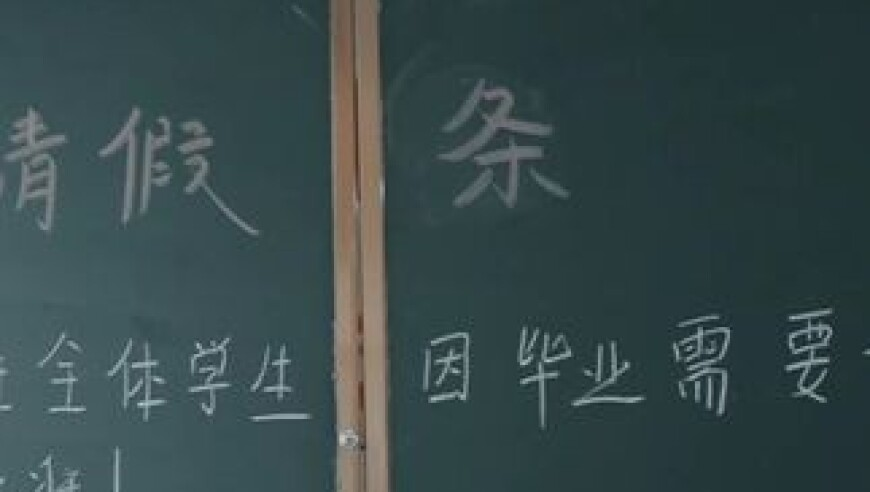 请假条
全体学生因毕业需要
准!